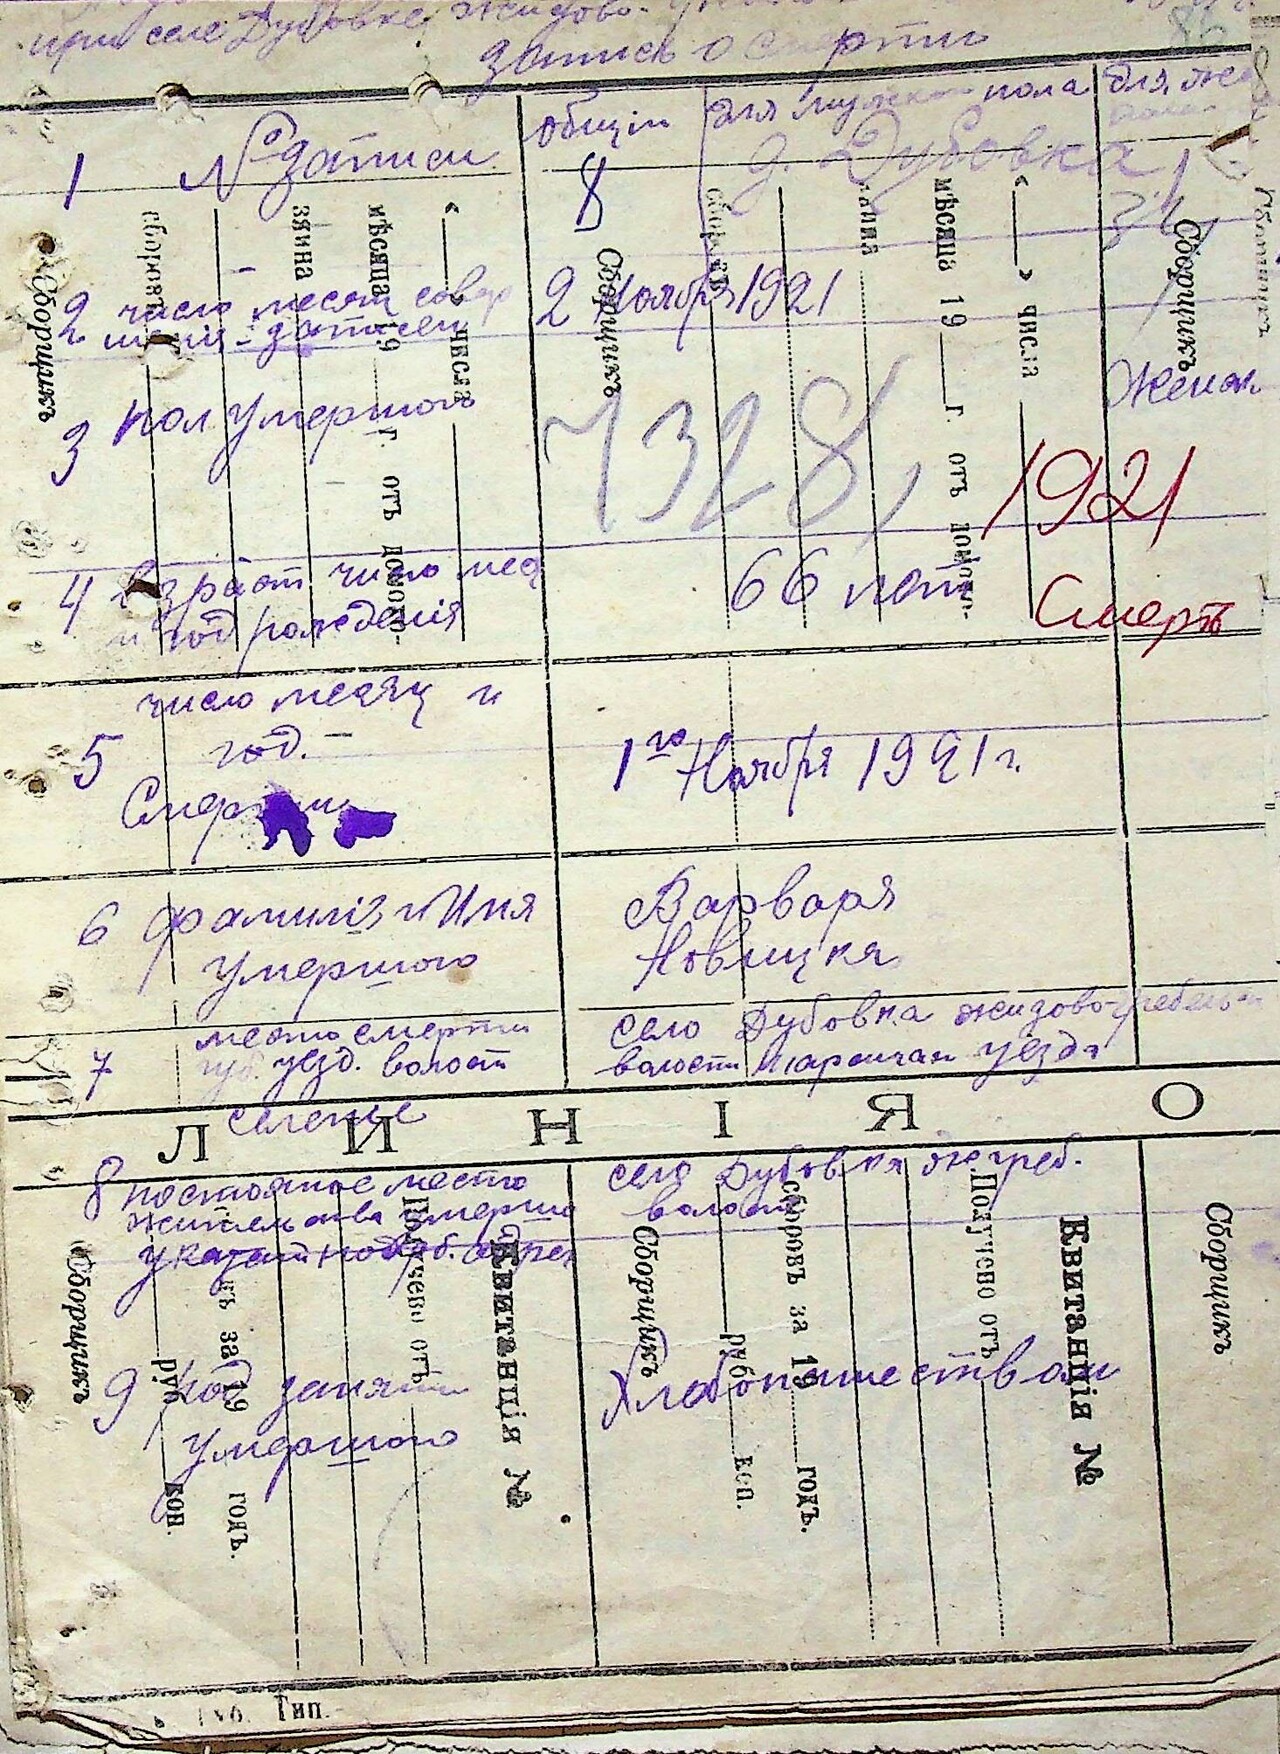 при селе Дубовке Жидово-
запись о смерти
86
1 № записи
общій 8
для мужско пола
для же
д. Дубовка
2 число месяц совер
шенія записи
2 Ноября 1921
3 пол умершого
Женск
7328,
1921
Смерть
4 возраст число мес
и год рожденія
66 лет
5 число месяц и
год. —
Смерти
1го Ноября 1921 г.
6 фамилія и Имя
умершого
Варвара
Новицкя
7 место смерти
губ. уезд. волост
селенье
село Дубовка жидово-гребель
волости Таращан уезда
Л И Н І Я О
8 постоянное место
жительства умершо
указат подроб. адрес
село Дубовка ж. греб.
волости
9 род заняти
умершого
Хлебопашеством
Сборщикъ
сборовъ
зяина
мѣсяца 19 г. отъ домохо-
« » числа
Сборщикъ
сборовъ
зяина
мѣсяца 19 г. отъ домохо-
« » числа
Сборщикъ
Сборщикъ
руб. коп.
къ за 19 годъ.
Получено отъ
Квитанція №
Сборщикъ
руб. коп.
сборовъ за 19 годъ.
Получено отъ
Квитанція №
Сборщикъ
Губ. Тип.